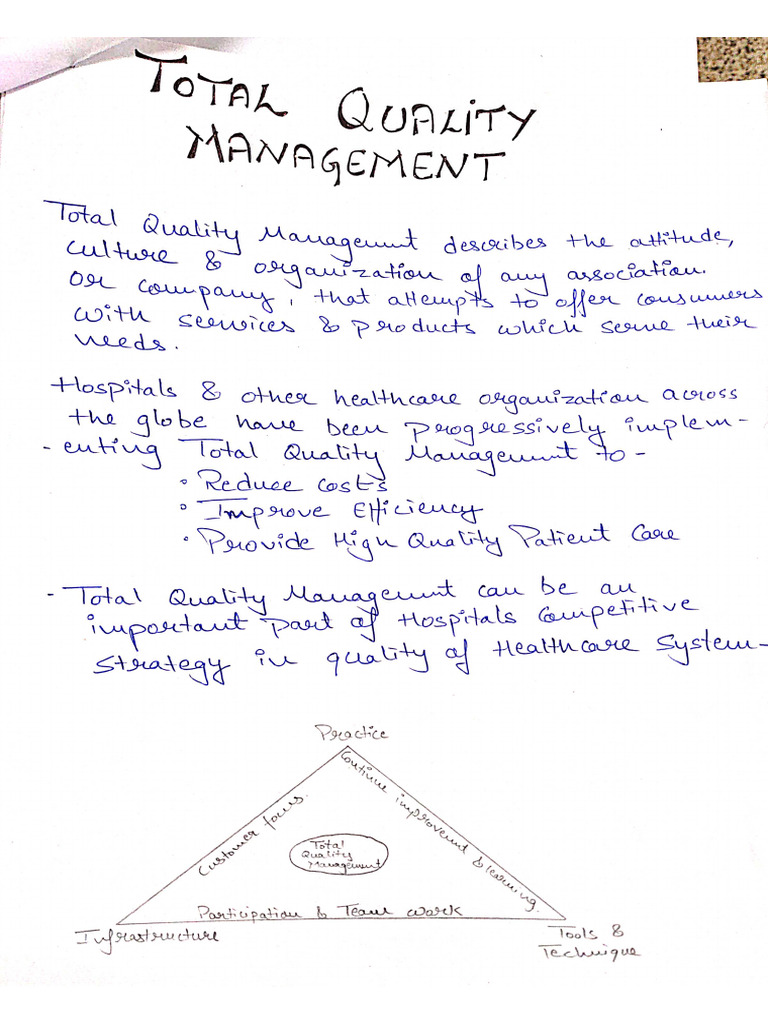 TOTAL QUALITY
MANAGEMENT
Total Quality Management describes the attitude,
culture & organization of any association.
or company, that attempts to offer consumers
with services & products which serve their
needs.
Hospitals & other healthcare organization across
the globe have been progressively implem-
-enting Total Quality Management to-
• Reduce costs
• Improve Efficiency
• Provide High Quality Patient Care
- Total Quality Management can be an
important part of Hospitals Competitive
Strategy in quality of Healthcare System-
Practice
Customer focus.
Continue improvement & learning.
Total
Quality
Management
Participation & Team work
Infrastructure
Tools &
Technique